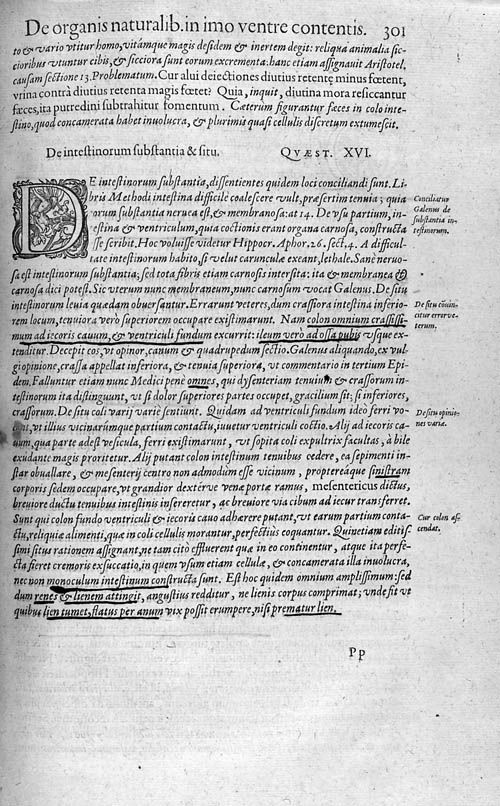 De organis naturalib. in imo ventre contentis. 301
to & vario vtitur homo, vitámque magis desidem & inertem degit: reliqua animalia sic-
cioribus vtuntur cibis, & sicciora sunt eorum excrementa: hanc etiam assignauit Aristotel.
causam sectione 13. Problematum. Cur alui deiectiones diutius retentę minus fœtent,
vrina contrà diutius retenta magis fœtet? Quia, inquit, diutina mora resiccantur
fæces, ita putredini subtrahitur fomentum. Cæterùm figurantur fæces in colo inte-
stino, quod concamerata habet inuolucra, & plurimis quasi cellulis discretum extumescit.
De intestinorum substantia & situ. QVÆST. XVI.
DE intestinorum substantia, dissentientes quidem loci conciliandi sunt. Li-
bris Methodi intestina difficile coalescere vult, præsertim tenuia; quia
eorum substantia neruea est, & membranosa: at 14. De vsu partium, in-
testina & ventriculum, quia coctionis erant organa carnosa, constructa
esse scribit. Hoc voluisse videtur Hippocr. Aphor. 26. sect. 4. A difficul-
tate intestinorum habito, si velut carunculæ exeant, lethale. Sanè neruo-
sa est intestinorum substantia; sed tota fibris etiam carnosis intersita: ita & membranea &
carnosa dici potest. Sic vterum nunc membraneum, nunc carnosum vocat Galenus. De situ
intestinorum leuia quædam obuersantur. Errarunt veteres, dum crassiora intestina inferio-
rem locum, tenuiora verò superiorem occupare existimarunt. Nam colon omnium crassissi-
mum ad iecoris cauum, & ventriculi fundum excurrit: ileum verò ad ossa pubis vsque ex-
tenditur. Decepit eos, vt opinor, canum & quadrupedum sectio. Galenus aliquando, ex vul-
gi opinione, crassa appellat inferiora, & tenuia superiora, vt commentario in tertium Epi-
dem. Falluntur etiam nunc Medici penè omnes, qui dysenteriam tenuium & crassorum in-
testinorum ita distinguunt, vt si dolor superiores partes occupet, gracilium sit; si inferiores,
crassorum. De situ coli varij variè sentiunt. Quidam ad ventriculi fundum ideò ferri vo-
lunt, vt illius vicinarúmque partium contactu, iuuetur ventriculi coctio. Alij ad iecoris ca-
uum, qua parte adest vesicula, ferri existimarunt, vt sopita coli expultrix facultas, à bile
exudante magis proritetur. Alij putant colon intestinum tenuibus cedere, ea sepimenti in-
star obuallare, & mesenterij centro non admodum esse vicinum, proptereáque sinistram
corporis sedem occupare, vt grandior dextérve venæ portæ ramus, mesentericus dictus,
breuiore ductu tenuibus intestinis insereretur, ac breuiore via cibum ad iecur transferret.
Sunt qui colon fundo ventriculi & iecoris cauo adhærere putant, vt earum partium conta-
ctu, reliquiæ alimenti, quæ in coli cellulis morantur, perfectiùs coquantur. Quinetiam editis-
simi situs rationem assignant, ne tam citò effluerent quæ in eo continentur, atque ita perfe-
cta fieret cremoris exsuccatio, in quem vsum etiam cellulæ, & concamerata illa inuolucra,
nec non monoculum intestinum constructa sunt. Est hoc quidem omnium amplissimum: sed
dum renes & lienem attingit, angustius redditur, ne lienis corpus comprimat; vnde fit vt
quibus lien tumet, flatus per anum vix possit erumpere, nisi prematur lien.
Pp
Conciliatur
Galenus de
substantia in-
testinorum.
De situ
terum.
De situ opinio-
nes variæ.
Cur colon as-
cendat.